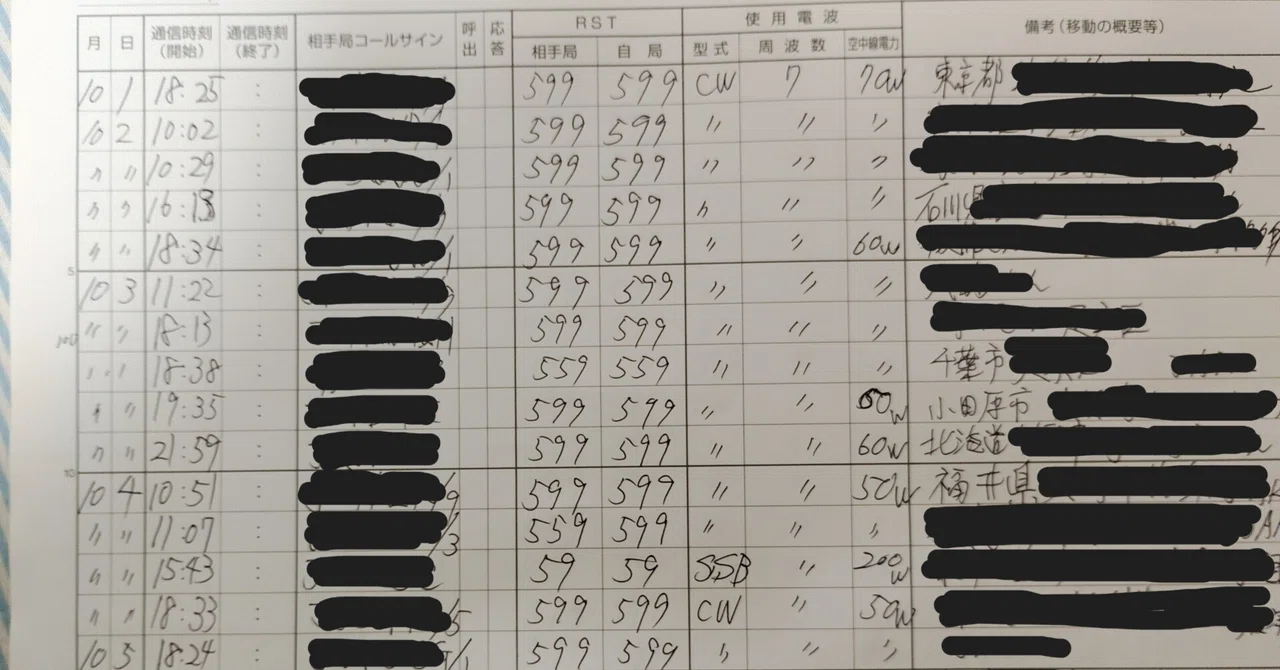 月 日 通信時刻(開始) 通信時刻(終了) 相手局コールサイン 呼出 応答 RST 相手局 自局 使用電波 型式 周波数 空中線電力 備考(移動の概要等)
10 1 18:25 : 599 599 CW 7 70W 東京都
10 2 10:02 : 599 599 〃 〃 〃
〃 〃 10:29 : 599 599 〃 〃 〃
〃 〃 16:13 : 599 599 〃 〃 〃 石川県
〃 〃 18:34 : 599 599 〃 〃 60W
5
10 3 11:22 : 599 599 〃 〃 〃
100 〃 〃 18:13 : 599 599 〃 〃 〃
〃 〃 18:38 : 559 559 〃 〃 〃 千葉市
〃 〃 19:35 : 599 599 〃 〃 50W 小田原市
〃 〃 21:59 : 599 599 〃 〃 60W 北海道
10
10 4 10:51 : /9 599 599 〃 〃 50W 福井県
〃 〃 11:07 : /3 559 599 〃 〃 〃
〃 〃 15:43 : 59 59 SSB 〃 200W
〃 〃 18:33 : /5 599 599 CW 〃 50W
10 5 18:24 : /1 599 599 〃 〃 〃